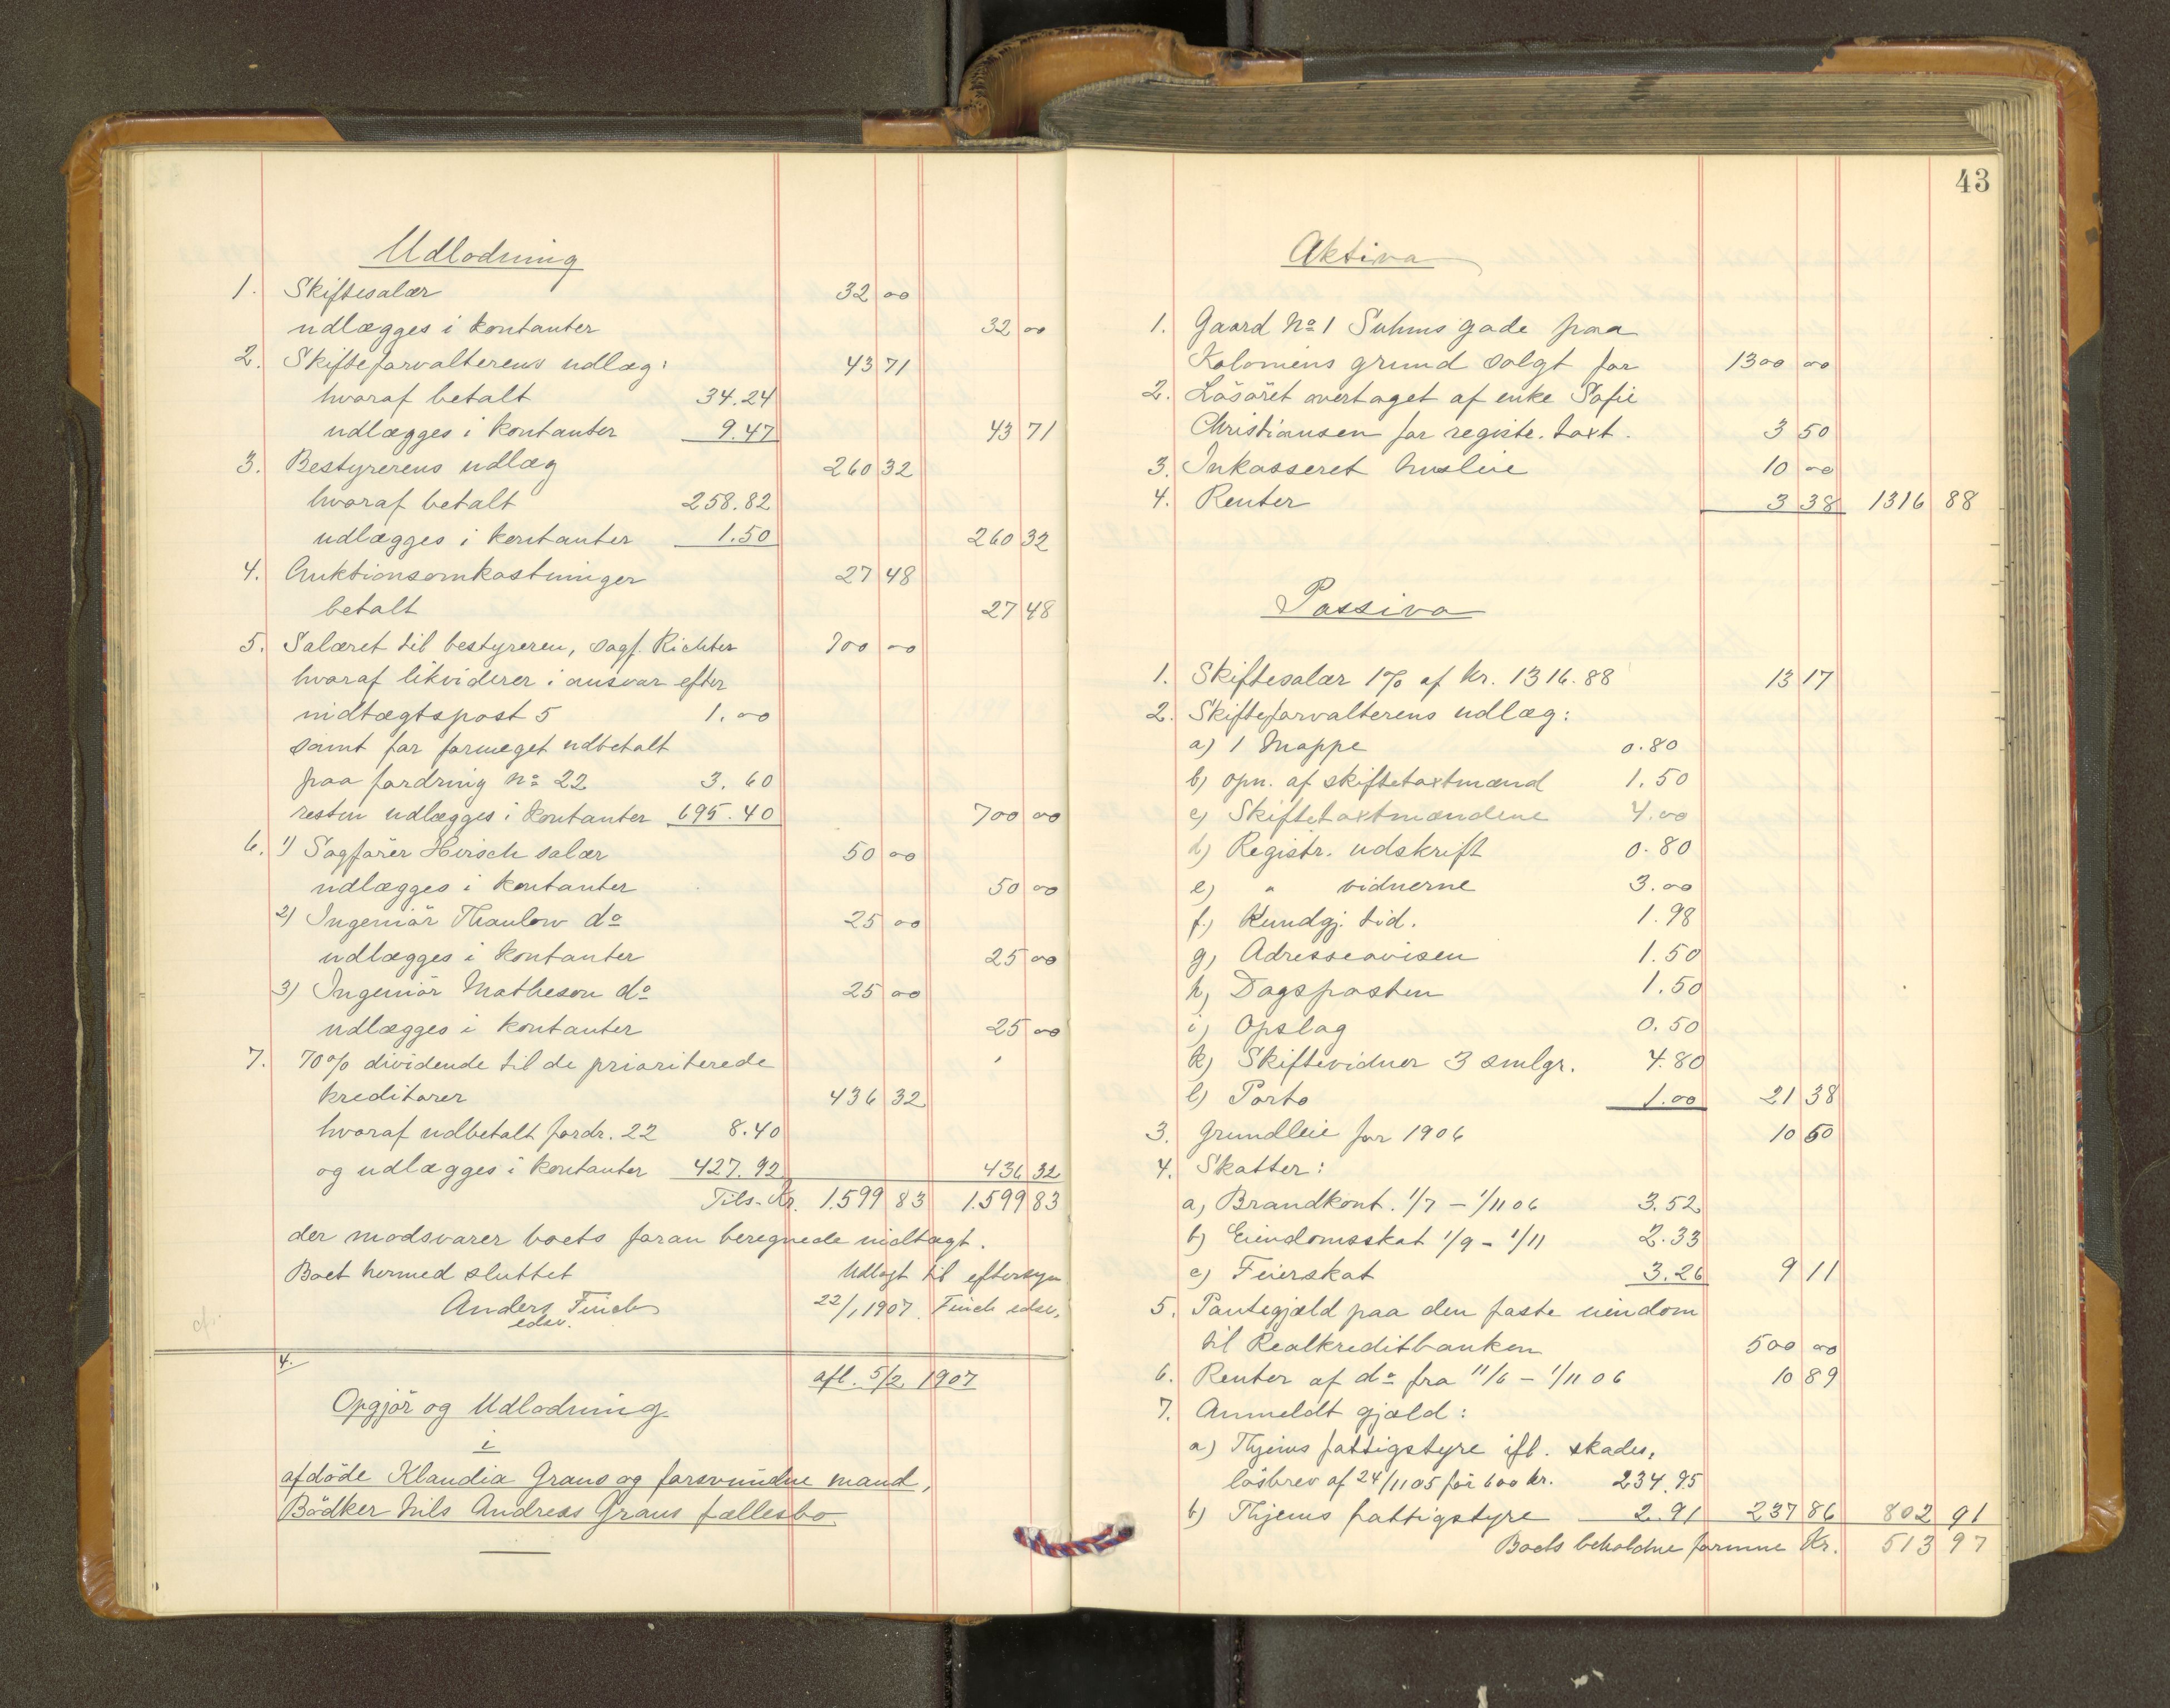 Udlodning
1. Skiftesalær 32 00
udlægges i kontanter 32 00
2. Skifteforvalterens udlæg: 43 71
hvoraf betalt 34.24
udlægges i kontanter 9.47 43 71
3. Bestyrerens udlæg 260 32
hvoraf betalt 258.82
udlægges i kontanter 1.50 260 32
4. Auktionsomkostninger 27 48
betalt 27 48
5. Salæret til bestyreren, sagf. Richter 700 00
hvoraf likviderer i ansvar efter
indtægtspost 5 1.00
samt for formeget udbetalt
paa fordring No 22 3.60
resten udlægges i kontanter 695.40 700 00
6. 1) Sagfører Hirsch salær 50 00
udlægges i kontanter 50 00
2) Ingeniør Thaulow do 25 00
udlægges i kontanter 25 00
3) Ingeniør Matheson do 25 00
udlægges i kontanter 25 00
7. 70% dividende til de prioriterede
kreditorer 436 32
hvoraf udbetalt fordr. 22 8.40
og udlægges i kontanter 427.92 436 32
Tils. Kr. 1.599 83 1.599 83
der modsvarer boets foran beregnede indtægt.
Boet hermed sluttet Udlagt til eftersyn
Anders Finch 22/1 1907. Finch edsv.
edsv.
4.
afl. 5/2 1907
Opgjör og Udlodning
i
afdöde Klaudia Graus og forsvundne mand,
Bödker Nils Andreas Graus fællesbo
43
Aktiva
1. Gaard No 1 Suhms gade paa
Kaloniens grund solgt for 1300 00
2. Lösöret overtaget af enke Sofie
Christiansen for registr. taxt. 3 50
3. Inkasseret husleie 10 00
4. Renter 3 38 1316 88
Passiva
1. Skiftesalær 1% af kr. 1316.88 13 17
2. Skifteforvalterens udlæg:
a) 1 Mappe 0.80
b) Opn. af skiftetaxtmænd 1.50
c) Skiftetaxtmændene 4.00
d) Registr. udskrift 0.80
e) " vidnerne 3.00
f) Kundgj. tid. 1.98
g) Adresseavisen 1.50
h) Dagsposten 1.50
i) Opslag 0.50
k) Skiftevidner 3 smlgr. 4.80
l) Porto 1.00 21 38
3. Grundleie for 1906 10 50
4. Skatter:
a) Brandkont. 1/7 - 1/11 06 3.52
b) Eiendomsskat 1/9 - 1/11 2.33
c) Feierskat 3.26 9 11
5. Pantegjæld paa den faste eiendom
til Realkreditbanken 500 00
6. Renter af do fra 11/6 - 1/11 06 10 89
7. Anmeldt gjæld:
a) Thjems fattigstyre ifl. skades,
lösbrev af 24/11 05 för 600 kr. 234.95
b) Thjems fattigstyre 2.91 237 86 802 91
Boets beholdne formue Kr. 513 97